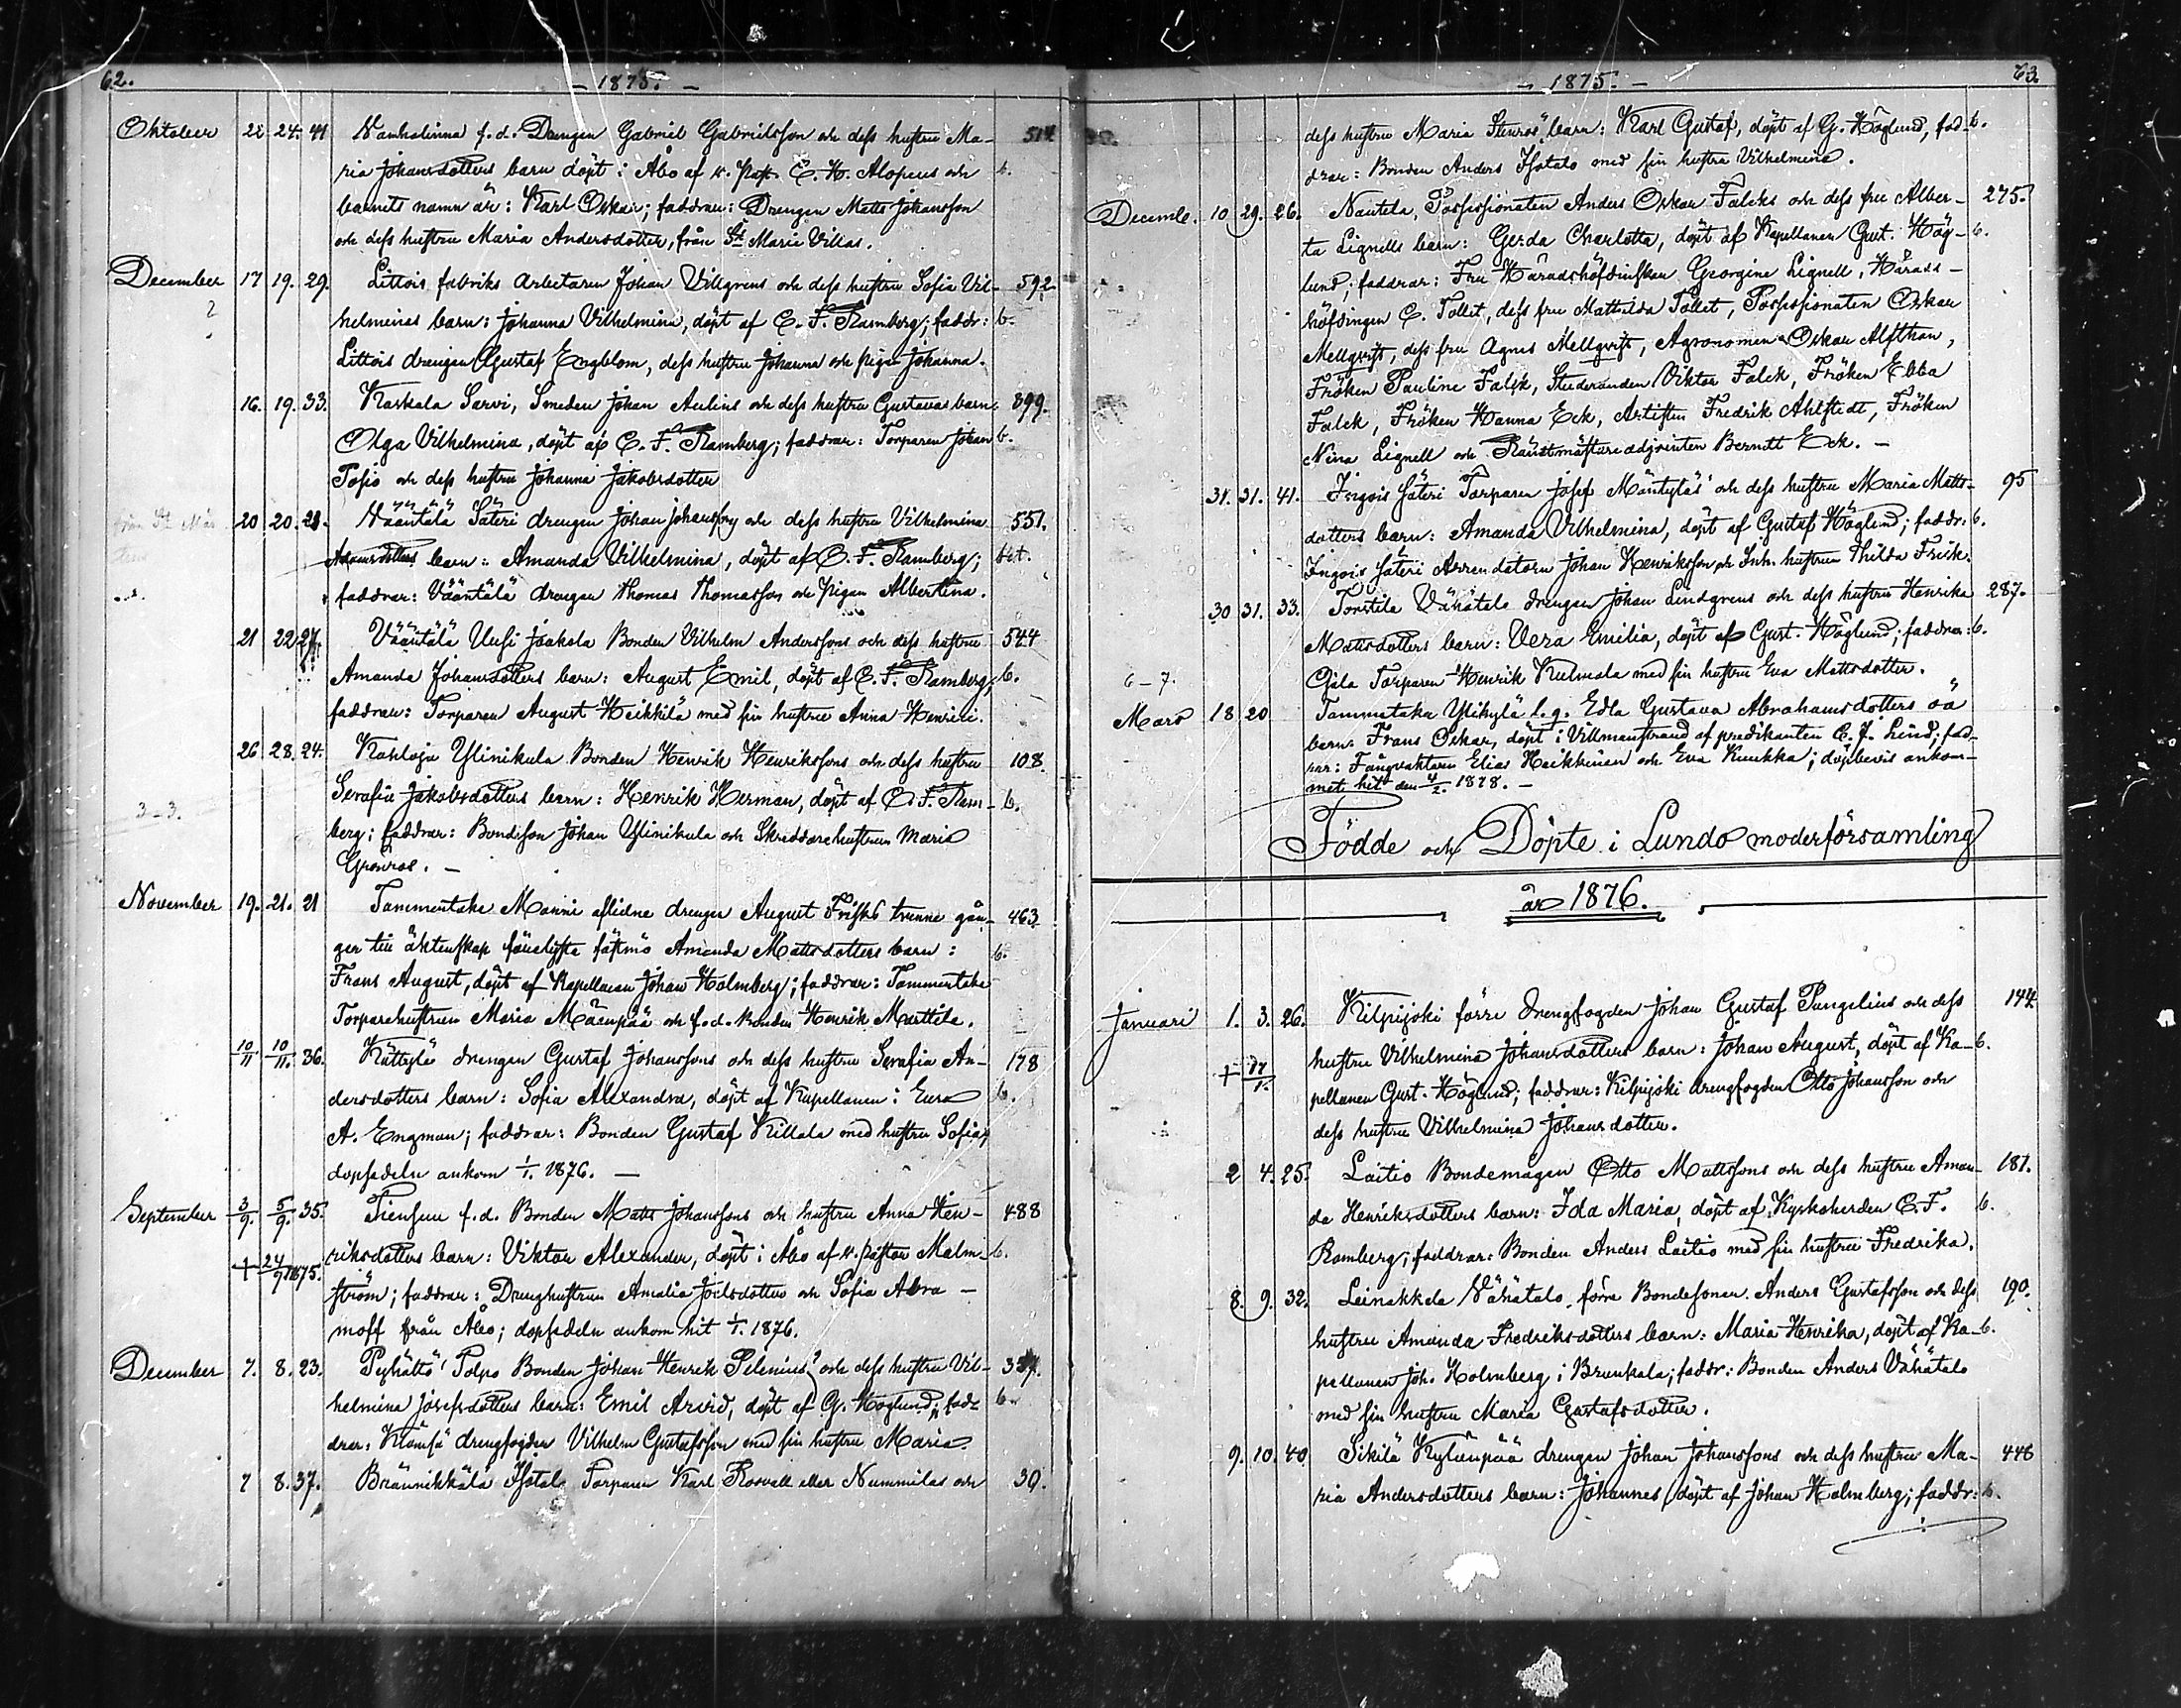 62.
- 1875. -
Oktober 22 24. 41 Vanhalinna f. d. Drengen Gabriel Gabrielsson och dess hustru Ma- 514
ria Johansdotters barn döpt i Åbo af v. past. C. H. Alopeus och b.
barnets namn är: Karl Oskar; faddrar: Drengen Matts Johansson
och dess hustru Maria Andersdotter, från St Marie Villas.
December 17 19. 29. Littois fabriks arbetaren Johan Villgrens och dess hustru Sofia Vil- 592
? helminas barn: Johanna Vilhelmina, döpt af C. F. Ramberg; faddr: b.
Littois drengen Gustaf Engblom, dess hustru Johanna och pigan Johanna.
16. 19. 33. Kaskala Sarvi, Smeden Johan Aulins och dess hustru Gustavas barn 399.
Olga Vilhelmina, döpt af C. F. Ramberg; faddrar: Torparen Johan b.
Tofis och dess hustru Johanna Jakobsdotter
från St Mar 20 20. 28. Vääntälä Säteri drengen Johan Johansson och dess hustru Vilhelmina 551.
Adamsdotters barn: Amanda Vilhelmina, döpt af C. F. Ramberg; b:t.
faddrar: Vääntälä drengen Thomas Thomasson och pigan Albertina.
21 22 27. Vääntälä Uusi Jaakola Bonden Vilhelm Anderssons och dess hustru 544
Amanda Johansdotters barn: August Emil, döpt af C. F. Ramberg; b.
faddrar: Torparen August Heikkilä med sin hustru Anna Henrici.
26 28. 24. Kahloja Ylinikula Bonden Henrik Henrikssons och dess hustru 108.
Serafia Jakobsdotters barn: Henrik Herman, döpt af C. F. Ram- b.
3-3. berg; faddrar: Bondeson Johan Ylinikula och Skreddarehustrun Maria
Grönros. -
November 19. 21. 21 Tammentaka Manni aflidne drengen August Frisks trenne gån- 463
ger till äktenskap förelyste fästmö Amanda Mattsdotters barn: b.
Frans August, döpt af Kapellanen Johan Holmberg; faddrar: Tammentaka
Torparehustrun Maria Mäenpää och f. d. Bonden Henrik Marttila.
10/11 10/11. 36. Kättylä drengen Gustaf Johanssons och dess hustru Serafia An- 178
dersdotters barn: Sofia Alexandra, döpt af Kapellanen i Eura b.
A. Engman; faddrar: Bonden Gustaf Killala med hustru Sofia,
dopsedeln ankom 1/1. 1876. -
September 3/9. 5/9. 35. Tiensuu f. d. Bonden Matts Johanssons och hustru Anna Hen- 488
† 24/9 1875. riksdotters barn: Viktor Alexander, döpt i Åbo af v. pastor Malm- b.
ström; faddrar: Drenghustrun Amalia Joelsdotter och Sofia Abra-
moff från Åbo; dopsedeln ankom hit 1/1. 1876.
December 7. 8. 23. Pyhältö Tolpo Bonden Johan Henrik Selenius och dess hustru Vil- 357.
helmina Josefsdotters barn: Emil Arvid, döpt af G. Höglund; fad- b.
drar: Krämsä drengfogden Vilhelm Gustafsson med sin hustru Maria.
7 8. 37. Brännikkälä Isotalo Torparen Karl Rosvall eller Nummilas och 30.
63.
- 1875. -
dess hustru Maria Stenros barn: Karl Gustaf, döpt af G. Höglund, fad- b.
drar: Bonden Anders Isotalo med sin hustru Vilhelmina.
Decemb. 10 29. 26. Nautela, Possessionaten Anders Oskar Falcks och dess fru Alber- 275.
ta Lignells barn: Gerda Charlotta, döpt af Kapellanen Gust. Hög- b.
lund; faddrar: Fru Häradshöfdinskan Georgine Lignell, Härads-
höfdingen C. Tollet, dess fru Mathilda Tollet, Possessionaten Oskar
Mellqvist, dess fru Agnes Mellqvist, Agronomen Oskar Alfthan,
Fröken Pauline Falck, Studeranden Viktor Falck, Fröken Ebba
Falck, Fröken Hanna Eck, Artisten Fredrik Ahlstedt, Fröken
Nina Lignell och Räntmästareadjointen Berndt Eck. -
31. 31. 41. Ingois Säteri Torparen Josef Mäntyläs och dess hustru Maria Matts- 95
dotters barn: Amanda Vilhelmina, döpt af Gustaf Höglund; faddr: b.
Ingois Säteri Arrendatorn Johan Henriksson och Inh. hustrun Thilda Frisk.
30 31. 33. Torstila Vähätalo drengen Johan Lindgrens och dess hustru Henrika 287.
Mattsdotters barn: Vera Emilia, döpt af Gust. Höglund; faddrar: b.
6-7. Torparen Henrik Kulmala med sin hustru Eva Mattsdotter.
Mars 18 20 Tammentaka Ylikylä l. q. Edla Gustava Abrahamsdotters oä
barn: Frans Oskar, döpt i Villmanstrand af predikanten C. J. Lind; fad-
rar: Fångvaktaren Elias Heikkinen och Eva Kuukka; döpbevis ankom-
met hit den 4/2. 1878. -
Födde och Döpte i Lundo moderförsamling
år 1876.
Januari 1. 3. 26. Kilpijoki förre Drengfogden Johan Gustaf Pungelius och dess 144
† 17/1. hustru Vilhelmina Johansdotters barn: Johan August, döpt af Ka- b.
pellanen Gust. Höglund; faddrar: Kilpijoki drengfogden Otto Johansson och
dess hustru Vilhelmina Johansdotter.
2 4. 25. Laitio Bondemågen Otto Mattssons och dess hustru Aman- 181.
da Henriksdotters barn: Ida Maria, döpt af Kyrkoherden C. F. b.
Ramberg; faddrar: Bonden Anders Laitio med sin hustru Fredrika.
8. 9. 32. Leinakkala Vähätalo förre Bondesonen Anders Gustafsson och dess 190.
hustru Amanda Fredriksdotters barn: Maria Henrika, döpt af Ka- b.
pellanen Joh. Holmberg i Brunkala; faddr: Bonden Anders Vähätalo
med sin hustru Maria Gustafsdotter.
9. 10. 40 Sikilä Kylänpää drengen Johan Johanssons och dess hustru Ma- 448
ria Andersdotters barn: Johannes, döpt af Johan Holmberg; faddr: b.